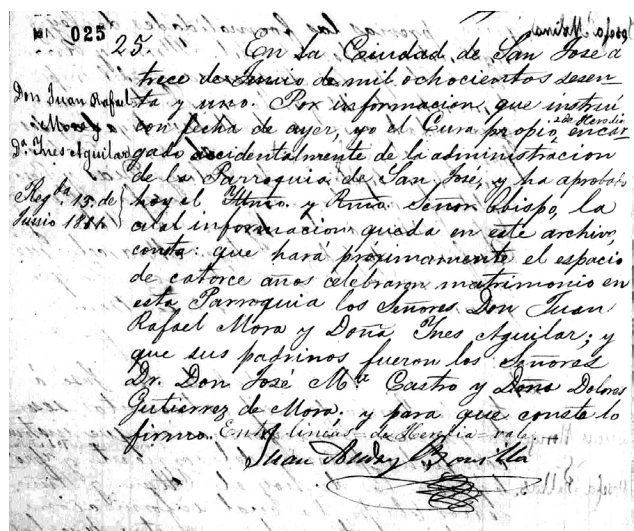 025
25. En la Ciudad de San José a
trece de Junio de mil ochocientos sesen-
ta y uno. Por informacion que instruí
con fecha de ayer, yo el Cura propio de Heredia encar-
gado accidentalmente de la administracion
de la Parroquia de San José, y ha aprobado
hoy el Iltmo. y Rmo. Señor Obispo, la
cual informacion queda en este archivo,
consta: que hará próximamente el espacio
de catorce años celebraron matrimonio en
esta Parroquia los Señores Don Juan
Rafael Mora y Doña Ines Aguilar; y
que sus padrinos fueron los Señores
Dr. Don José Ma. Castro y Doña Dolores
Gutierrez de Mora. y para que conste lo
firmo. Entre lineas = de Heredia = vale
Juan Bonilla
Don Juan Rafael
Mora y
Da. Ines Aguilar
Junio
Josefa Molina